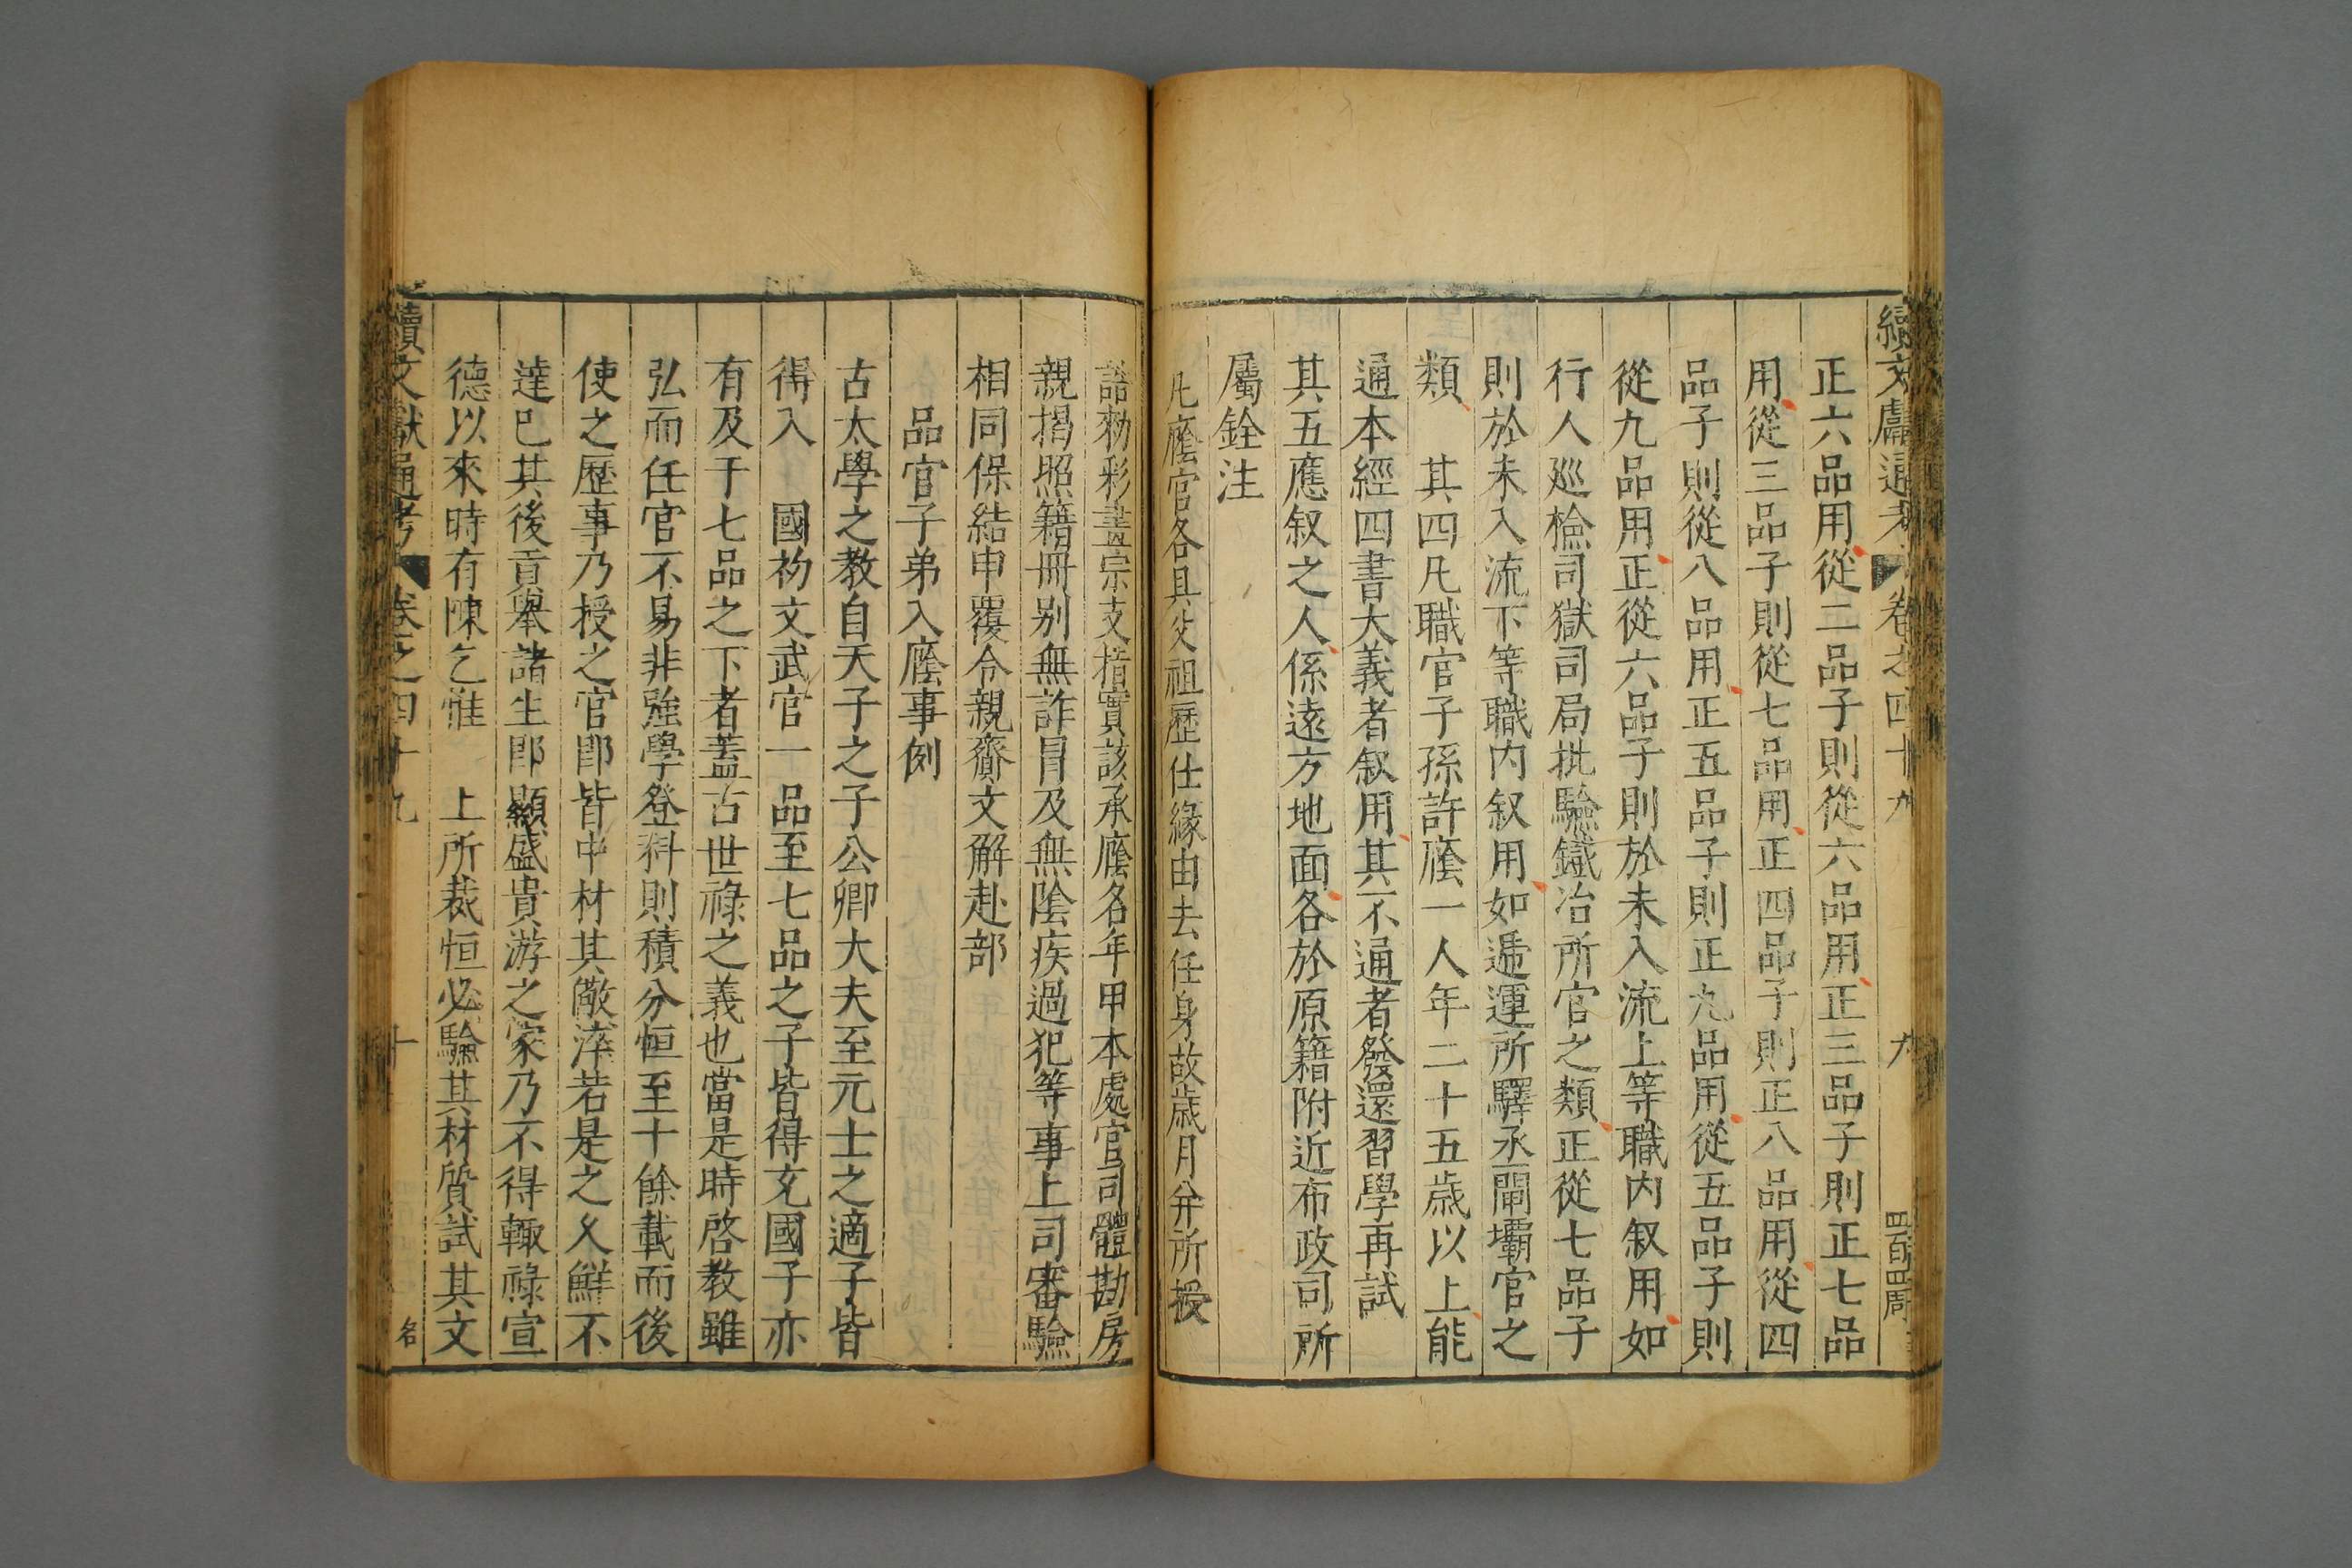 續文獻通考 卷之四十九 九
正六品用從二品子則從六品用正三品子則正七品
用從三品子則從七品用正四品子則正八品用從四
品子則從八品用正五品子則正九品用從五品子則
從九品用正從六品子則於未入流上等職内叙用如
行人巡檢司獄司局批驗鐵冶所官之類正從七品子
則於未入流下等職内叙用如遞運所驛丞閘壩官之
類 其四凡職官子孫許廕一人年二十五歲以上能
通本經四書大義者叙用其不通者發還習學再試
其五應叙之人係遠方地面各於原籍附近布政司所
屬銓注
凡廕官各具父祖歷仕緣由去任身故歲月并所授
誥勑彩畫宗支指實該承廕名年甲本處官司體勘房
親揭照籍冊别無詐冒及無陰疾過犯等事上司審驗
相同保結申覆令親齎文解赴部
品官子弟入廕事例
古太學之教自天子之子公卿大夫至元士之適子皆
得入 國初文武官一品至七品之子皆得充國子亦
有及于七品之下者蓋古世祿之義也當是時啓教雖
弘而任官不易非強學登科則積分恒至十餘載而後
使之歷事乃授之官即皆中材其儆淬若是之久鮮不
達已其後貢舉諸生即顯盛貴游之家乃不得輙祿宣
德以來時有陳乞惟 上所裁恒必驗其材質試其文
續文獻通考 卷之四十九 十 名